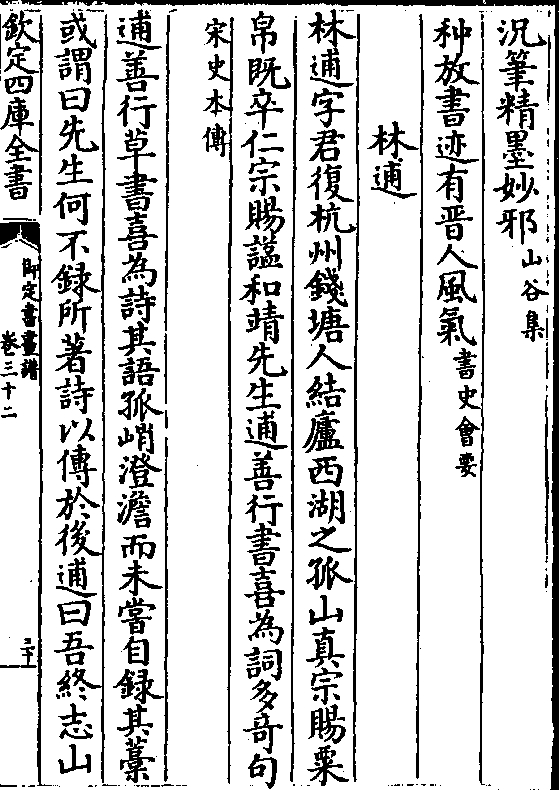 況筆精墨妙邪山谷集
种放書迹有晋人風氣書史會要
林逋
林逋字君復杭州錢塘人結廬西湖之孤山真宗賜粟
帛既卒仁宗賜諡和靖先生逋善行書喜為詞多竒句
宋史本傳
逋善行草書喜為詩其語孤峭澄澹而未嘗自録其藁
或謂曰先生何不録所著詩以傳於後逋曰吾終志山
欽定四庫全書
御定書畫譜
卷三十二
二十